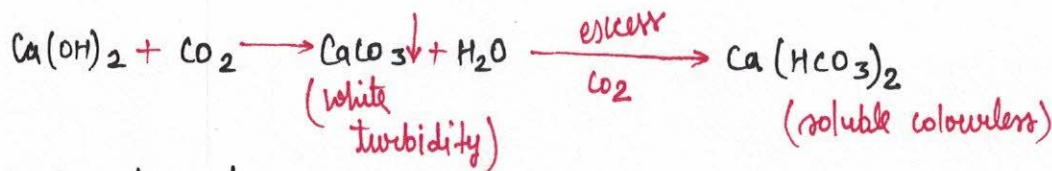 Ca(OH)2 + CO2 → CaCO3↓ + H2O excess CO2 → Ca(HCO3)2
(white turbidity)
(soluble colourless)